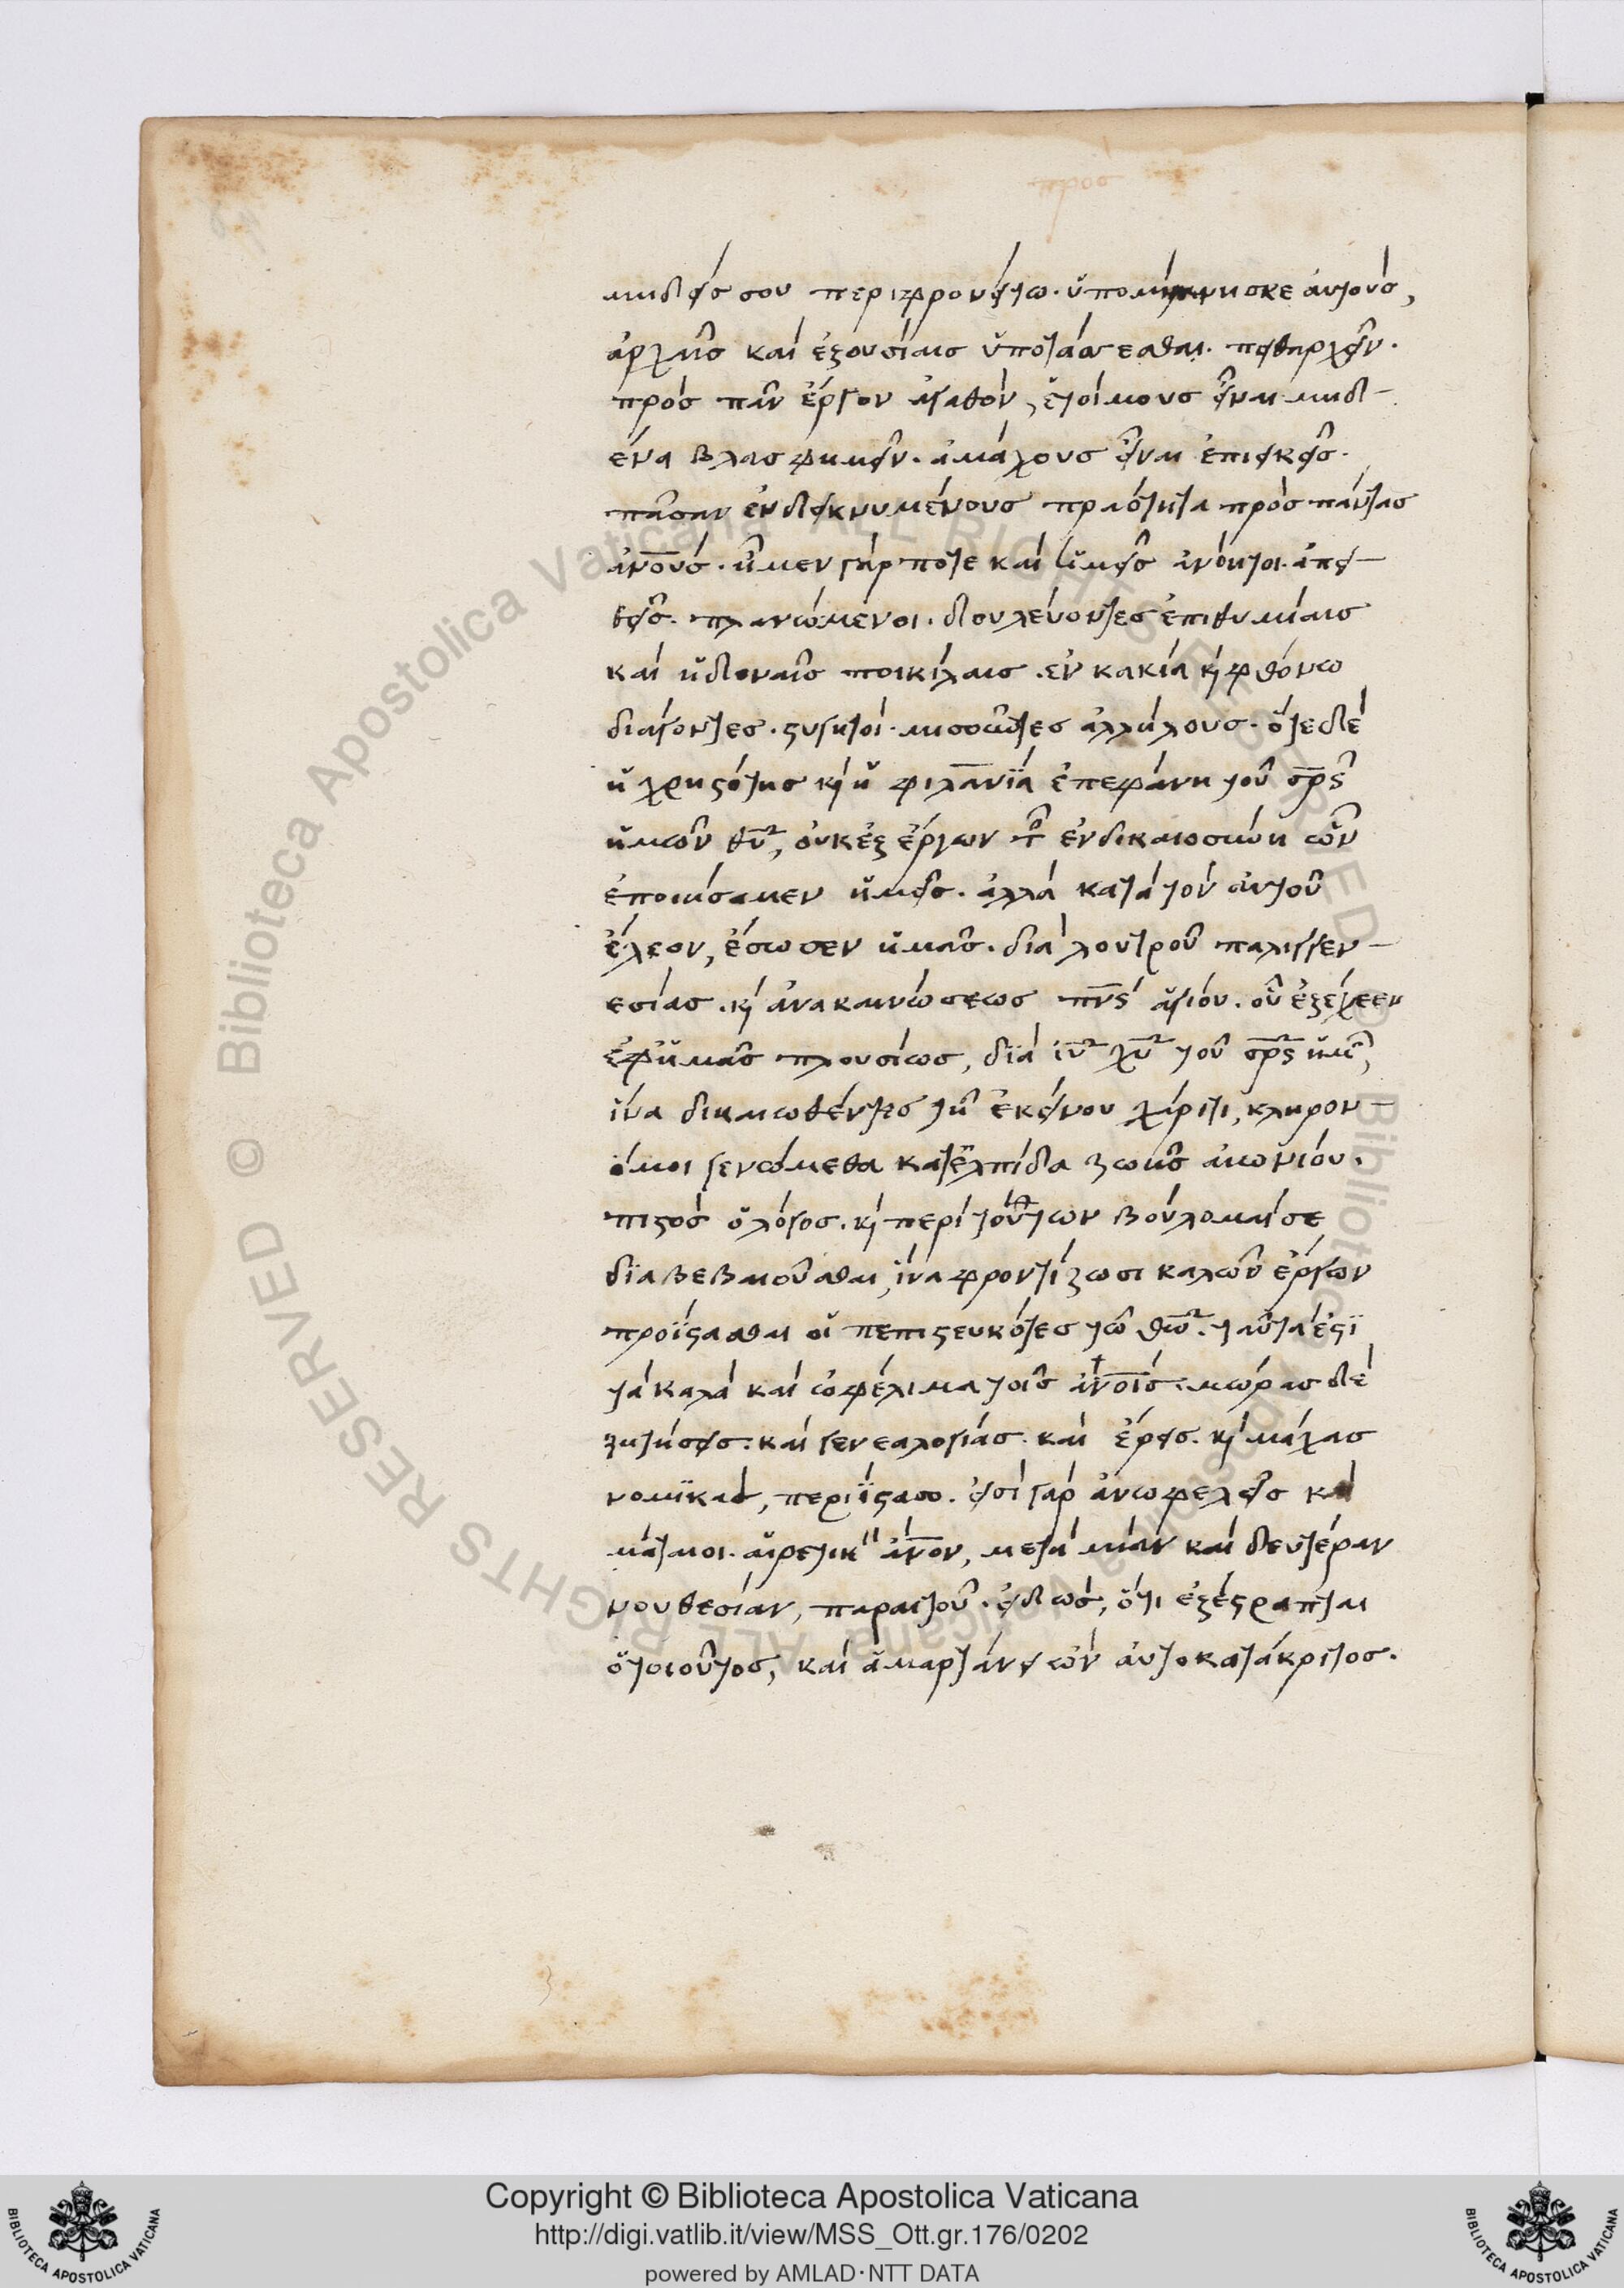 προσ
μηδείς σου περιφρονείτω. ὑπομίμνησκε αὐτούς,
ἀρχαῖς καὶ ἐξουσίαις ὑποτάσσεσθαι. πειθαρχεῖν.
πρὸς πᾶν ἔργον ἀγαθὸν, ἑτοίμους εἶναι μηδ-
ένα βλασφημεῖν. ἀμάχους εἶναι ἐπιεικεῖς.
πᾶσαν ἐνδεικνυμένους πραότητα πρὸς πάντας
ἀν̅ους. ἦμεν γάρ ποτε καὶ ἡμεῖς ἀνόητοι. ἀπει-
θεῖς. πλανώμενοι. δουλεύοντες ἐπιθυμίαις
καὶ ἡδοναῖς ποικίλαις. ἐν κακία κ φθόνω
διάγοντες. στυγητοί. μισοῦντες ἀλλήλους. ὅτε δὲ
ἡ χρηστότης κ ἡ φιλαν̅ΐα ἐπεφάνη τοῦ σρ̅ς
ἡμῶν θυ̅, οὐκ ἐξ ἔργων τ ἐν δικαιοσύνη ὧν
ἐποιήσαμεν ἡμεῖς. ἀλλὰ κατὰ τὸν αὐτοῦ
ἔλεον, ἔσωσεν ἡμᾶς. διὰ λουτροῦ παλιγγεν-
εσίας. κ ἀνακαινώσεως πν̅ς ἁγίου. οὗ ἐξέχεεν
ἐφ ἡμᾶς πλουσίως, διὰ ιυ̅ χυ̅ τοῦ σρ̅ς ἡμ,
ἵνα δικαιωθέντες τῆ ἐκείνου χάριτι, κληρον-
όμοι γενώμεθα κατ ἐλπίδα ζωῆς αἰωνίου.
πιστὸς ὁ λόγος. κ περὶ τούτων βούλομαί σε
διαβεβαιοῦσθαι, ἵνα φροντίζωσι καλῶν ἔργων
προΐστασθαι οἱ πεπιστευκότες τῶ θω̅. ταῦτά ἐστϊ
τὰ καλὰ καὶ ὠφέλιμα τοῖς ἀν̅οις. μωρὰς δὲ
ζητήσεις. καὶ γενεαλογίας. καὶ ἔρεις. κ μάχας
νομϊκὰς, περιΐστασο. εἰσὶ γὰρ ἀνωφελεῖς καὶ
μάταιοι. αἱρετικ ἄν̅ον, μετὰ μίαν καὶ δευτέραν
νουθεσίαν, παραιτοῦ. εἰδὼς, ὅτι ἐξέστραπται
ὁ τοιοῦτος, καὶ ἁμαρτάνει ὢν αὐτοκατάκριτος.
Copyright © Biblioteca Apostolica Vaticana
http://digi.vatlib.it/view/MSS_Ott.gr.176/0202
powered by AMLAD·NTT DATA
BIBLIOTECA APOSTOLICA VATICANA
BIBLIOTECA APOSTOLICA VATICANA
© Biblioteca Apostolica Vaticana ALL RIGHTS RESERVED
© Biblioteca Apostolica Vaticana ALL RIGHTS RESERVED